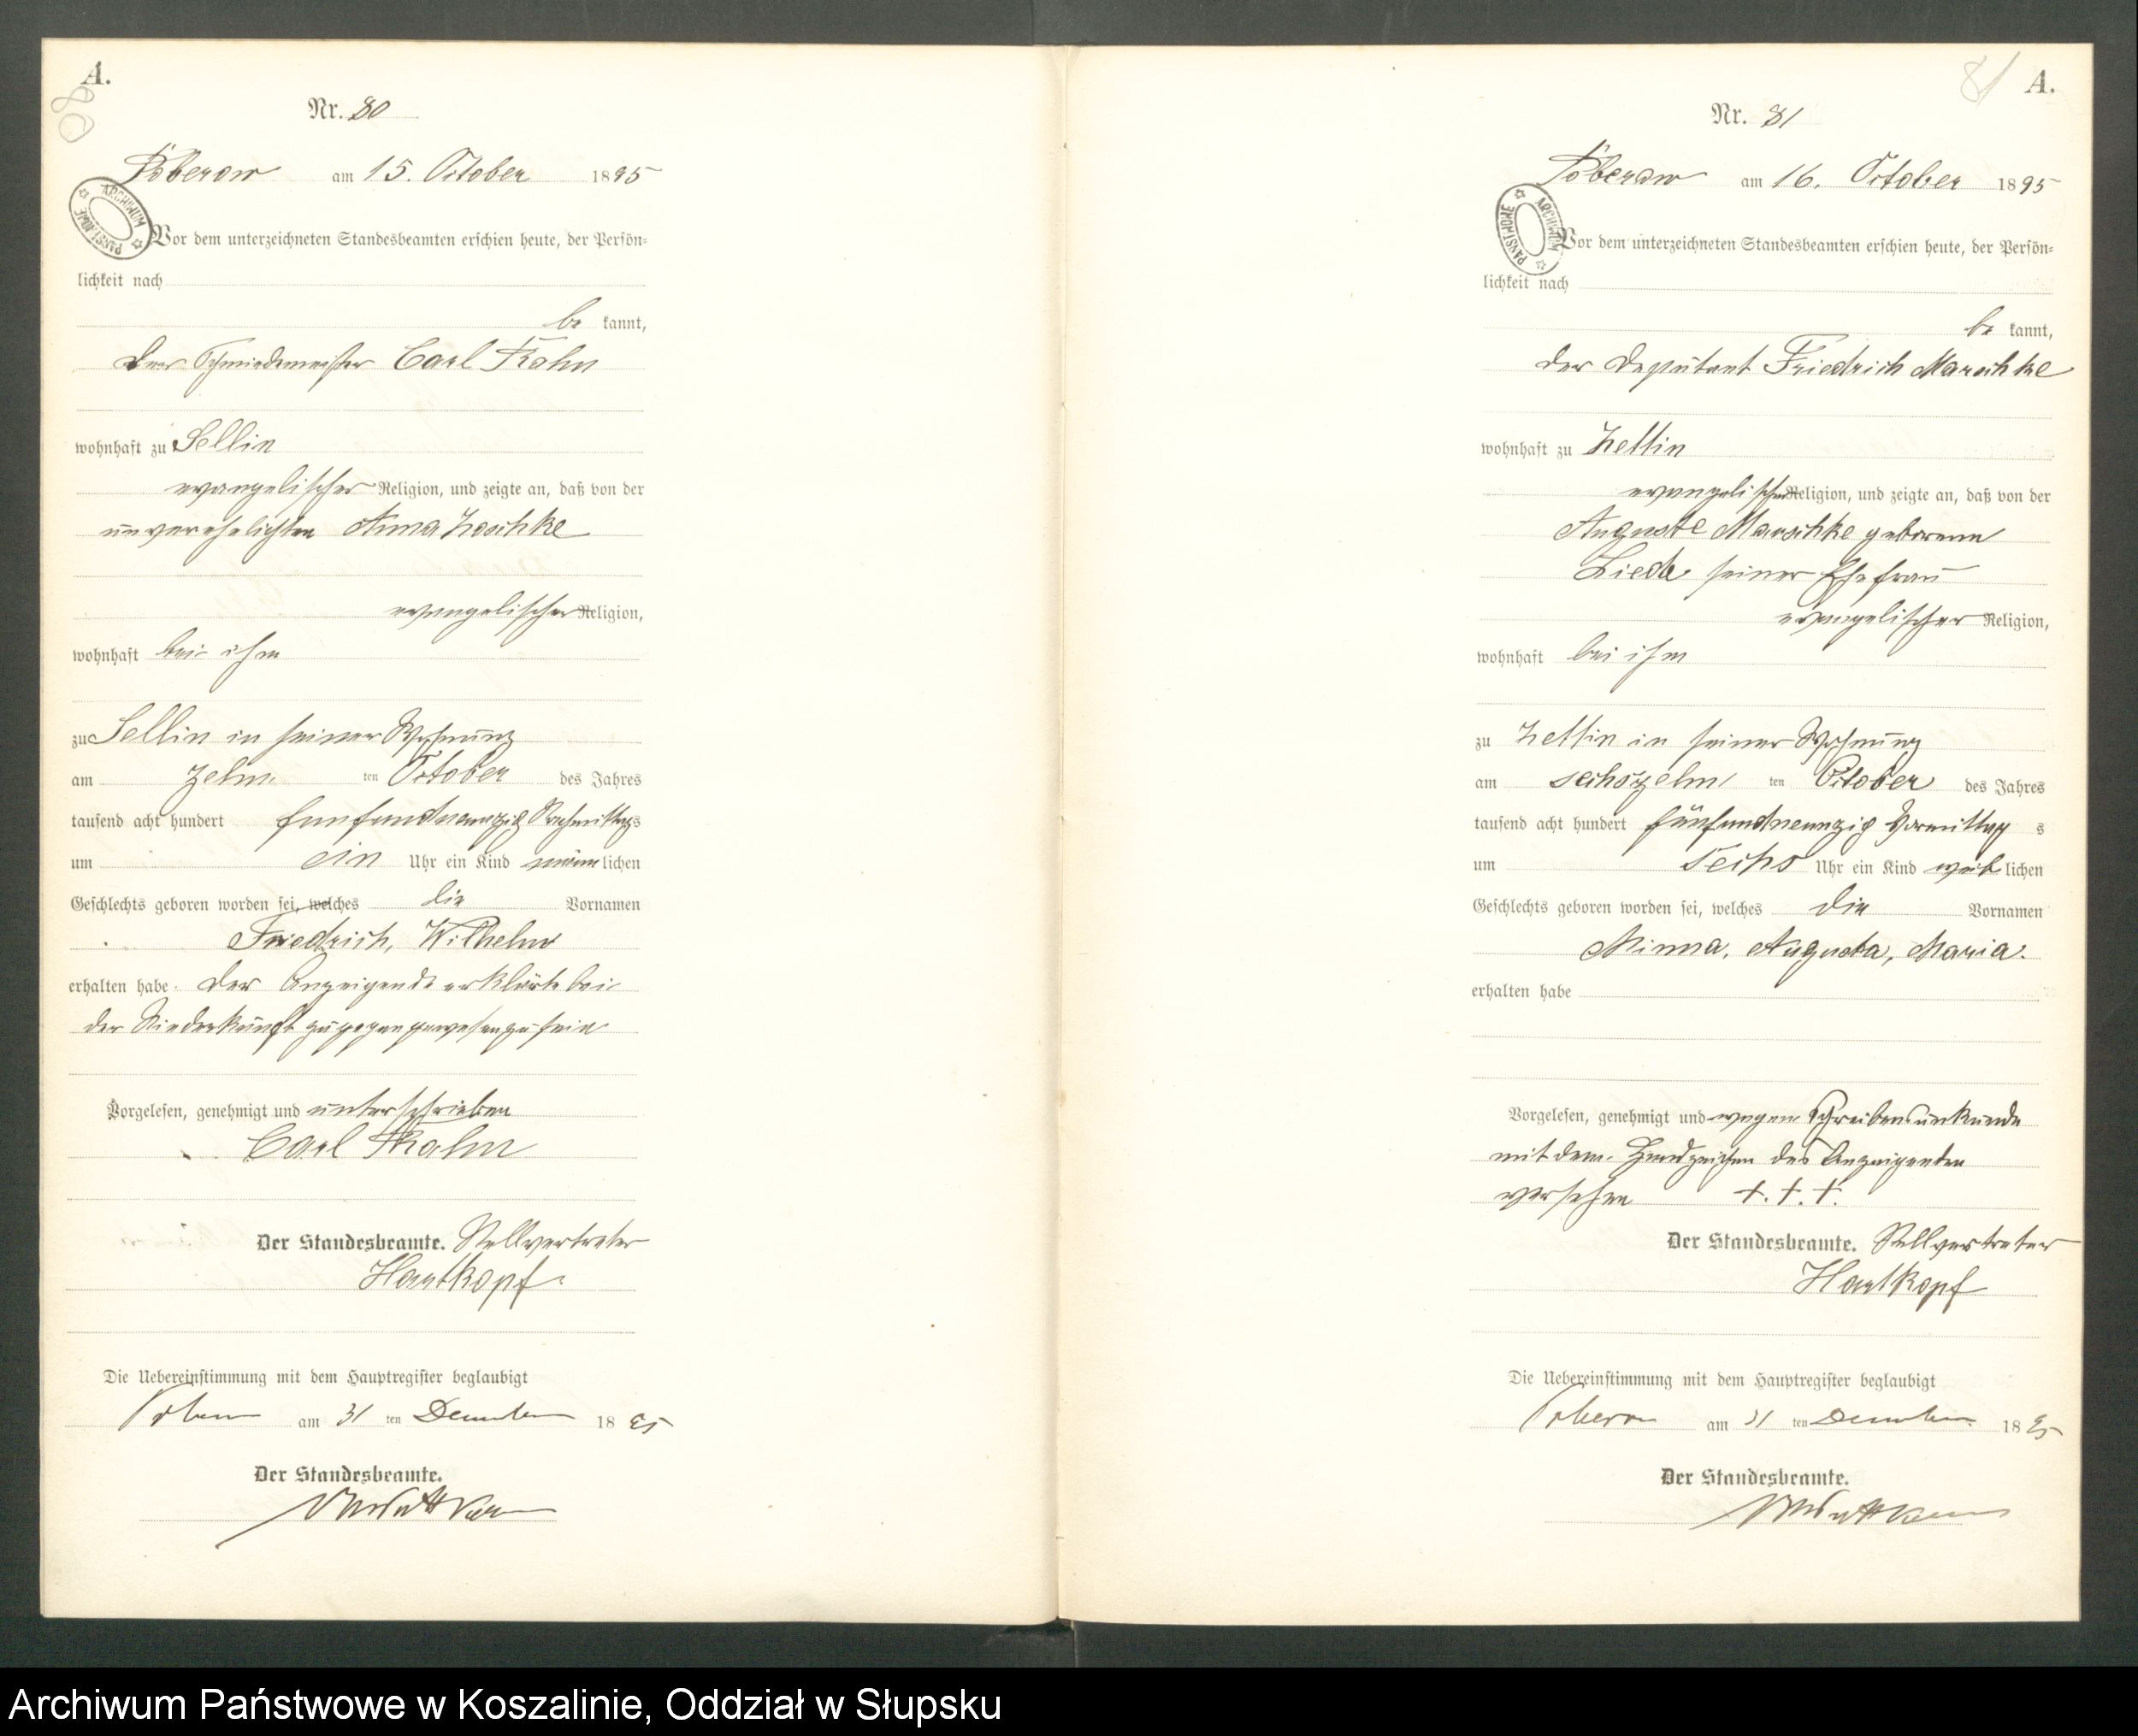 A.
80
Nr. 80
Poberow am 15. October 1895
ARCHIWUM PAŃSTWOWE
Vor dem unterzeichneten Standesbeamten erschien heute, der Persön=
lichkeit nach
be kannt,
der Schmiedemeister Carl Rahn
wohnhaft zu Sellin
evangelischer Religion, und zeigte an, daß von der
unverehelichten Anna Zeschke
evangelischer Religion,
wohnhaft bei ihm
zu Sellin in seiner Wohnung
am zehn ten October des Jahres
tausend acht hundert fünfundneunzig Nachmittags
um ein Uhr ein Kind männlichen
Geschlechts geboren worden sei, welches die Vornamen
Friedrich, Wilhelm
erhalten habe. Der Anzeigende erklärte bei
der Niederkunft zugegen gewesen zu sein
Vorgelesen, genehmigt und unterschrieben
Carl Rahn
Der Standesbeamte. Stellvertreter
Hartkopf.
Die Uebereinstimmung mit dem Hauptregister beglaubigt
am 31 ten December 1895
Der Standesbeamte.
81 A.
Nr. 81
Poberow am 16. October 1895
ARCHIWUM PAŃSTWOWE
Vor dem unterzeichneten Standesbeamten erschien heute, der Persön=
lichkeit nach
be kannt,
der Deputant Friedrich Marschke
wohnhaft zu Zettin
evangelischer Religion, und zeigte an, daß von der
Auguste Marschke geborenen
Liedke seiner Ehefrau
evangelischer Religion,
wohnhaft bei ihm
zu Zettin in seiner Wohnung
am sechszehn ten October des Jahres
tausend acht hundert fünfundneunzig Vormittag s
um sechs Uhr ein Kind weib lichen
Geschlechts geboren worden sei, welches die Vornamen
Minna, Augusta, Maria.
erhalten habe
Vorgelesen, genehmigt und wegen Schreibensunkunde
mit dem Handzeichen des Anzeigenden
versehen +.+.+.
Der Standesbeamte. Stellvertreter
Hartkopf
Die Uebereinstimmung mit dem Hauptregister beglaubigt
Poberow am 31 ten December 1895
Der Standesbeamte.
Archiwum Państwowe w Koszalinie, Oddział w Słupsku